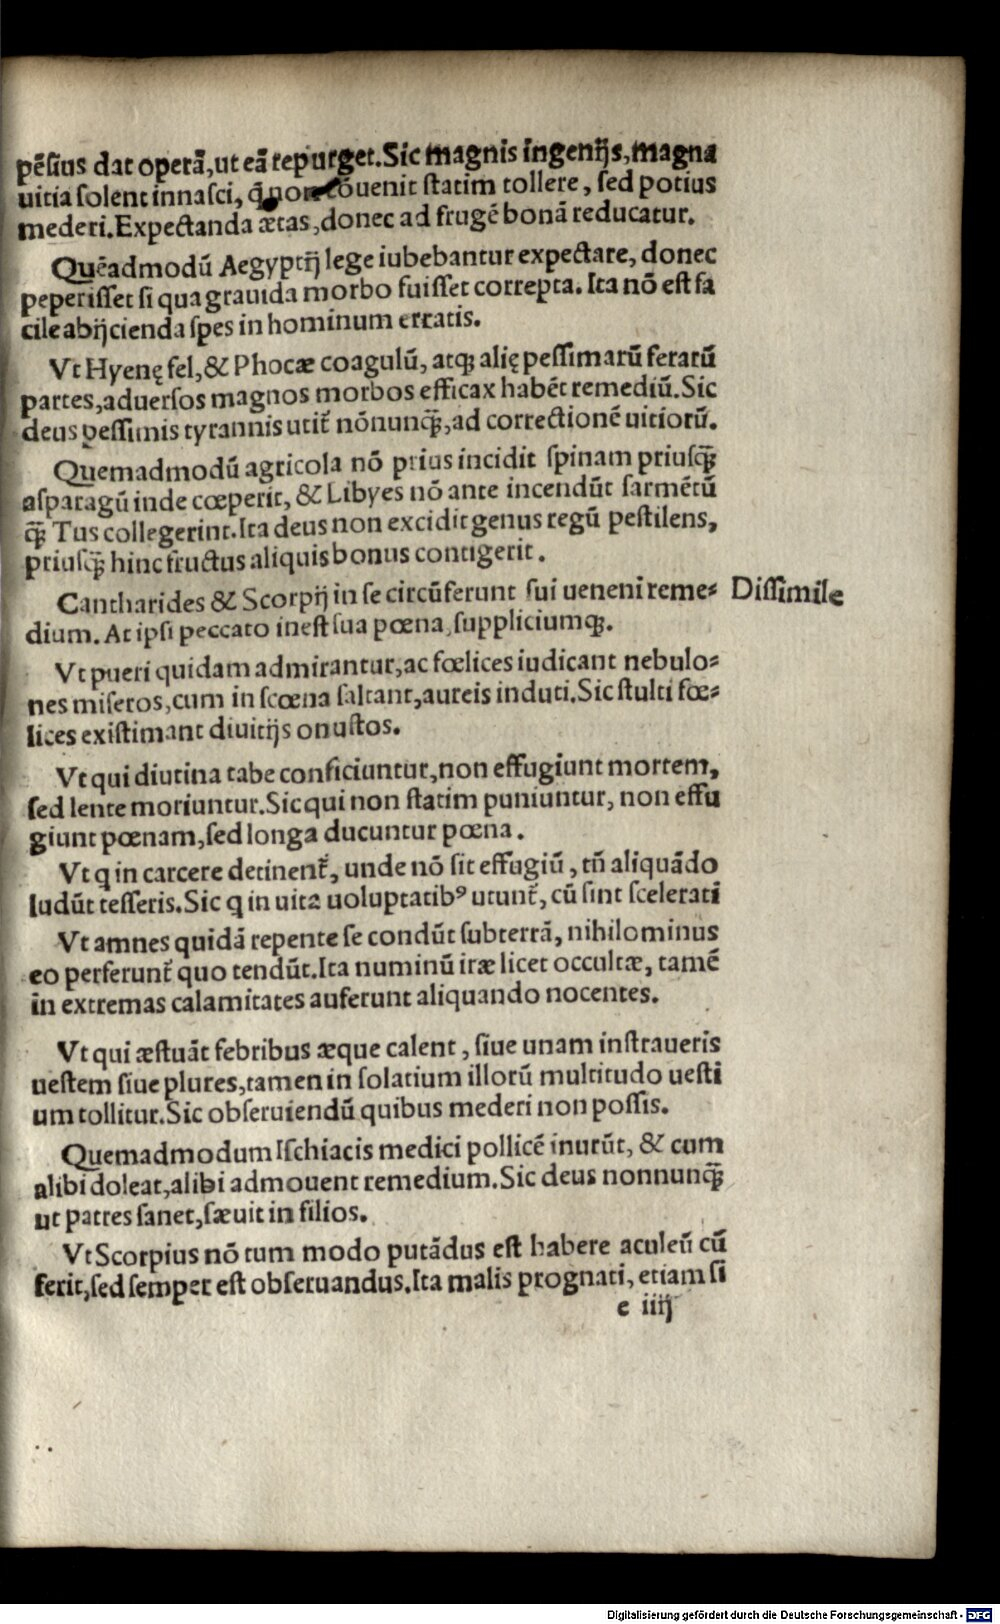 pẽsius dat operã, ut eã repurget. Sic magnis ingenijs, magna
uitia solent innasci, q̃ non cõuenit statim tollere, sed potius
mederi. Expectanda ætas, donec ad frugẽ bonã reducatur.
Quẽadmodũ Aegyptij lege iubebantur expectare, donec
peperisset si qua grauida morbo fuisset correpta. Ita nõ est fa
cile abijcienda spes in hominum erratis.
Vt Hyenę fel, & Phocæ coagulũ, atqꝫ alię pessimarũ ferarũ
partes, aduersos magnos morbos efficax habẽt remediũ. Sic
deus pessimis tyrannis utit᷑ nõnunqꝫ̃, ad correctionẽ uitiorũ.
Quemadmodũ agricola nõ prius incidit spinam priusqꝫ̃
asparagũ inde cœperit, & Libyes nõ ante incendũt sarmẽtũ
qꝫ̃ Tus collegerint. Ita deus non excidit genus regũ pestilens,
priusqꝫ̃ hinc fructus aliquis bonus contigerit.
Cantharides & Scorpij in se circũferunt sui ueneni reme⸗ Dissimile
dium. At ipsi peccato inest sua pœna, suppliciumqꝫ.
Vt pueri quidam admirantur, ac fœlices iudicant nebulo⸗
nes miseros, cum in scœna saltant, aureis induti. Sic stulti fœ⸗
lices existimant diuitijs onustos.
Vt qui diutina tabe conficiuntur, non effugiunt mortem,
sed lente moriuntur. Sic qui non statim puniuntur, non effu
giunt pœnam, sed longa ducuntur pœna.
Vt q in carcere detinent᷑, unde nõ sit effugiũ, tñ aliquãdo
ludũt tesseris. Sic q in uita uoluptatibꝰ utunt᷑, cũ sint scelerati
Vt amnes quidã repente se condũt subterrã, nihilominus
eo perferunt᷑ quo tendũt. Ita numinũ iræ licet occultæ, tamẽ
in extremas calamitates auferunt aliquando nocentes.
Vt qui æstuãt febribus æque calent, siue unam instraueris
uestem siue plures, tamen in solatium illorũ multitudo uesti
um tollitur. Sic obseruiendũ quibus mederi non possis.
Quemadmodum Ischiacis medici pollicẽ inurũt, & cum
alibi doleat, alibi admouent remedium. Sic deus nonnunqꝫ̃
ut patres sanet, sæuit in filios.
Vt Scorpius nõ tum modo putãdus est habere aculeũ cũ
ferit, sed semper est obseruandus. Ita malis prognati, etiam si
e iiij
Digitalisierung gefördert durch die Deutsche Forschungsgemeinschaft - DFG